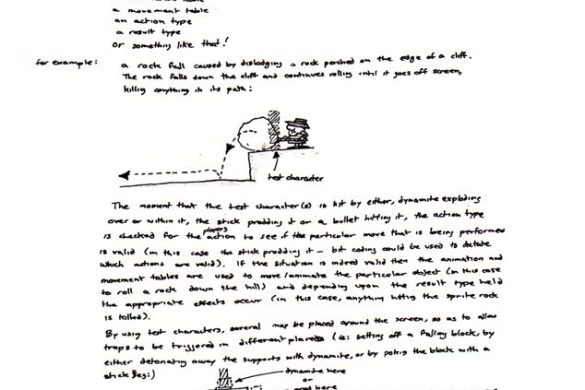 a movement table
an action type
a result type
or something like that!
for example: a rock fall caused by dislodging a rock perched on the edge of a cliff.
The rock falls down the cliff and continues rolling until it goes off screen,
killing anything in its path:
test character
The moment that the test character(s) is hit by either, dynamite exploding
over or within it, the stick prodding it or a bullet hitting it, the action type
is checked for the players action to see if the particular move that is being performed
is valid (in this case the stick prodding it - bit coding could be used to dictate
which actions are valid). If the situation is indeed valid then the animation and
movement tables are used to move/animate the particular object (in this case
to roll a rock down the hill) and depending upon the result type held
the appropriate effects occur (in this case, anything hitting the sprite rock
is killed).
By using test characters, several may be placed around the screen, so as to allow
traps to be triggered in different places (ie: setting off a falling block, by
either detonating away the supports with dynamite, or by poking the block with a
stick
dynamite here
or
here